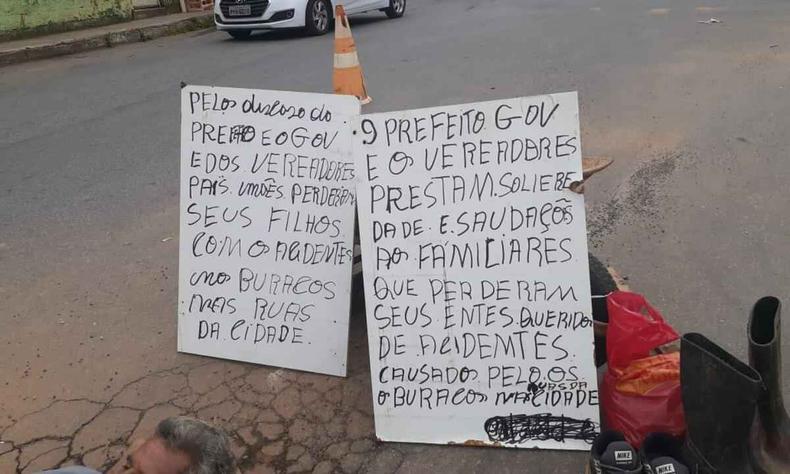 PELOS descaso do
PREFTO E O GOV
E DOS VEREADORES
PAIS. UMÕES. PERDERAM
SEUS FILHOS.
COM OS ACIDENTES
NO BURACOS
NAS RUAS
DA CIDADE.
O PREFEITO GOV
E OS VEREADORES
PRESTAM. SOLIERE
DADE. E. SAUDAÇÕS
AO FAMILIARES.
QUE PERDERAM
SEUS. ENTES. QUERIDOS
DE ACIDEMTES.
CAUSADO PELO.OS
O BURACOS NAS RUAS DA CIDADE
NIKE
NIKE